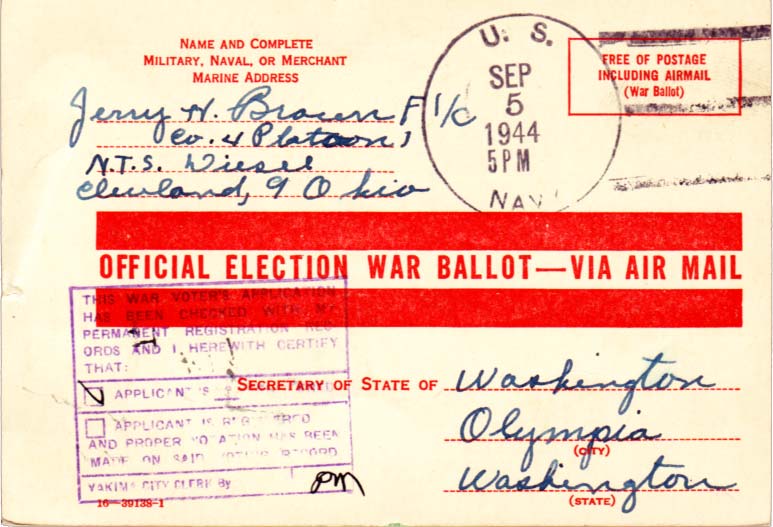 NAME AND COMPLETE
MILITARY, NAVAL, OR MERCHANT
MARINE ADDRESS
Jerry H. Brown F 1/c
Co. 4 Platoon 1
N.T.S. Diesel
Cleveland, 9 Ohio
U. S.
SEP
5
1944
5 PM
NAVY
FREE OF POSTAGE
INCLUDING AIRMAIL
(War Ballot)
OFFICIAL ELECTION WAR BALLOT—VIA AIR MAIL
THIS WAR VOTER'S APPLICATION
HAS BEEN CHECKED WITH MY
PERMANENT REGISTRATION REC-
ORDS AND I HEREWITH CERTIFY
THAT:
APPLICANT IS
APPLICANT IS REGISTERED
AND PROPER NOTATION HAS BEEN
MADE ON SAID VOTER'S RECORD
YAKIMA CITY CLERK By
pm
SECRETARY OF STATE OF Washington
Olympia
(CITY)
Washington
(STATE)
16—39138-1